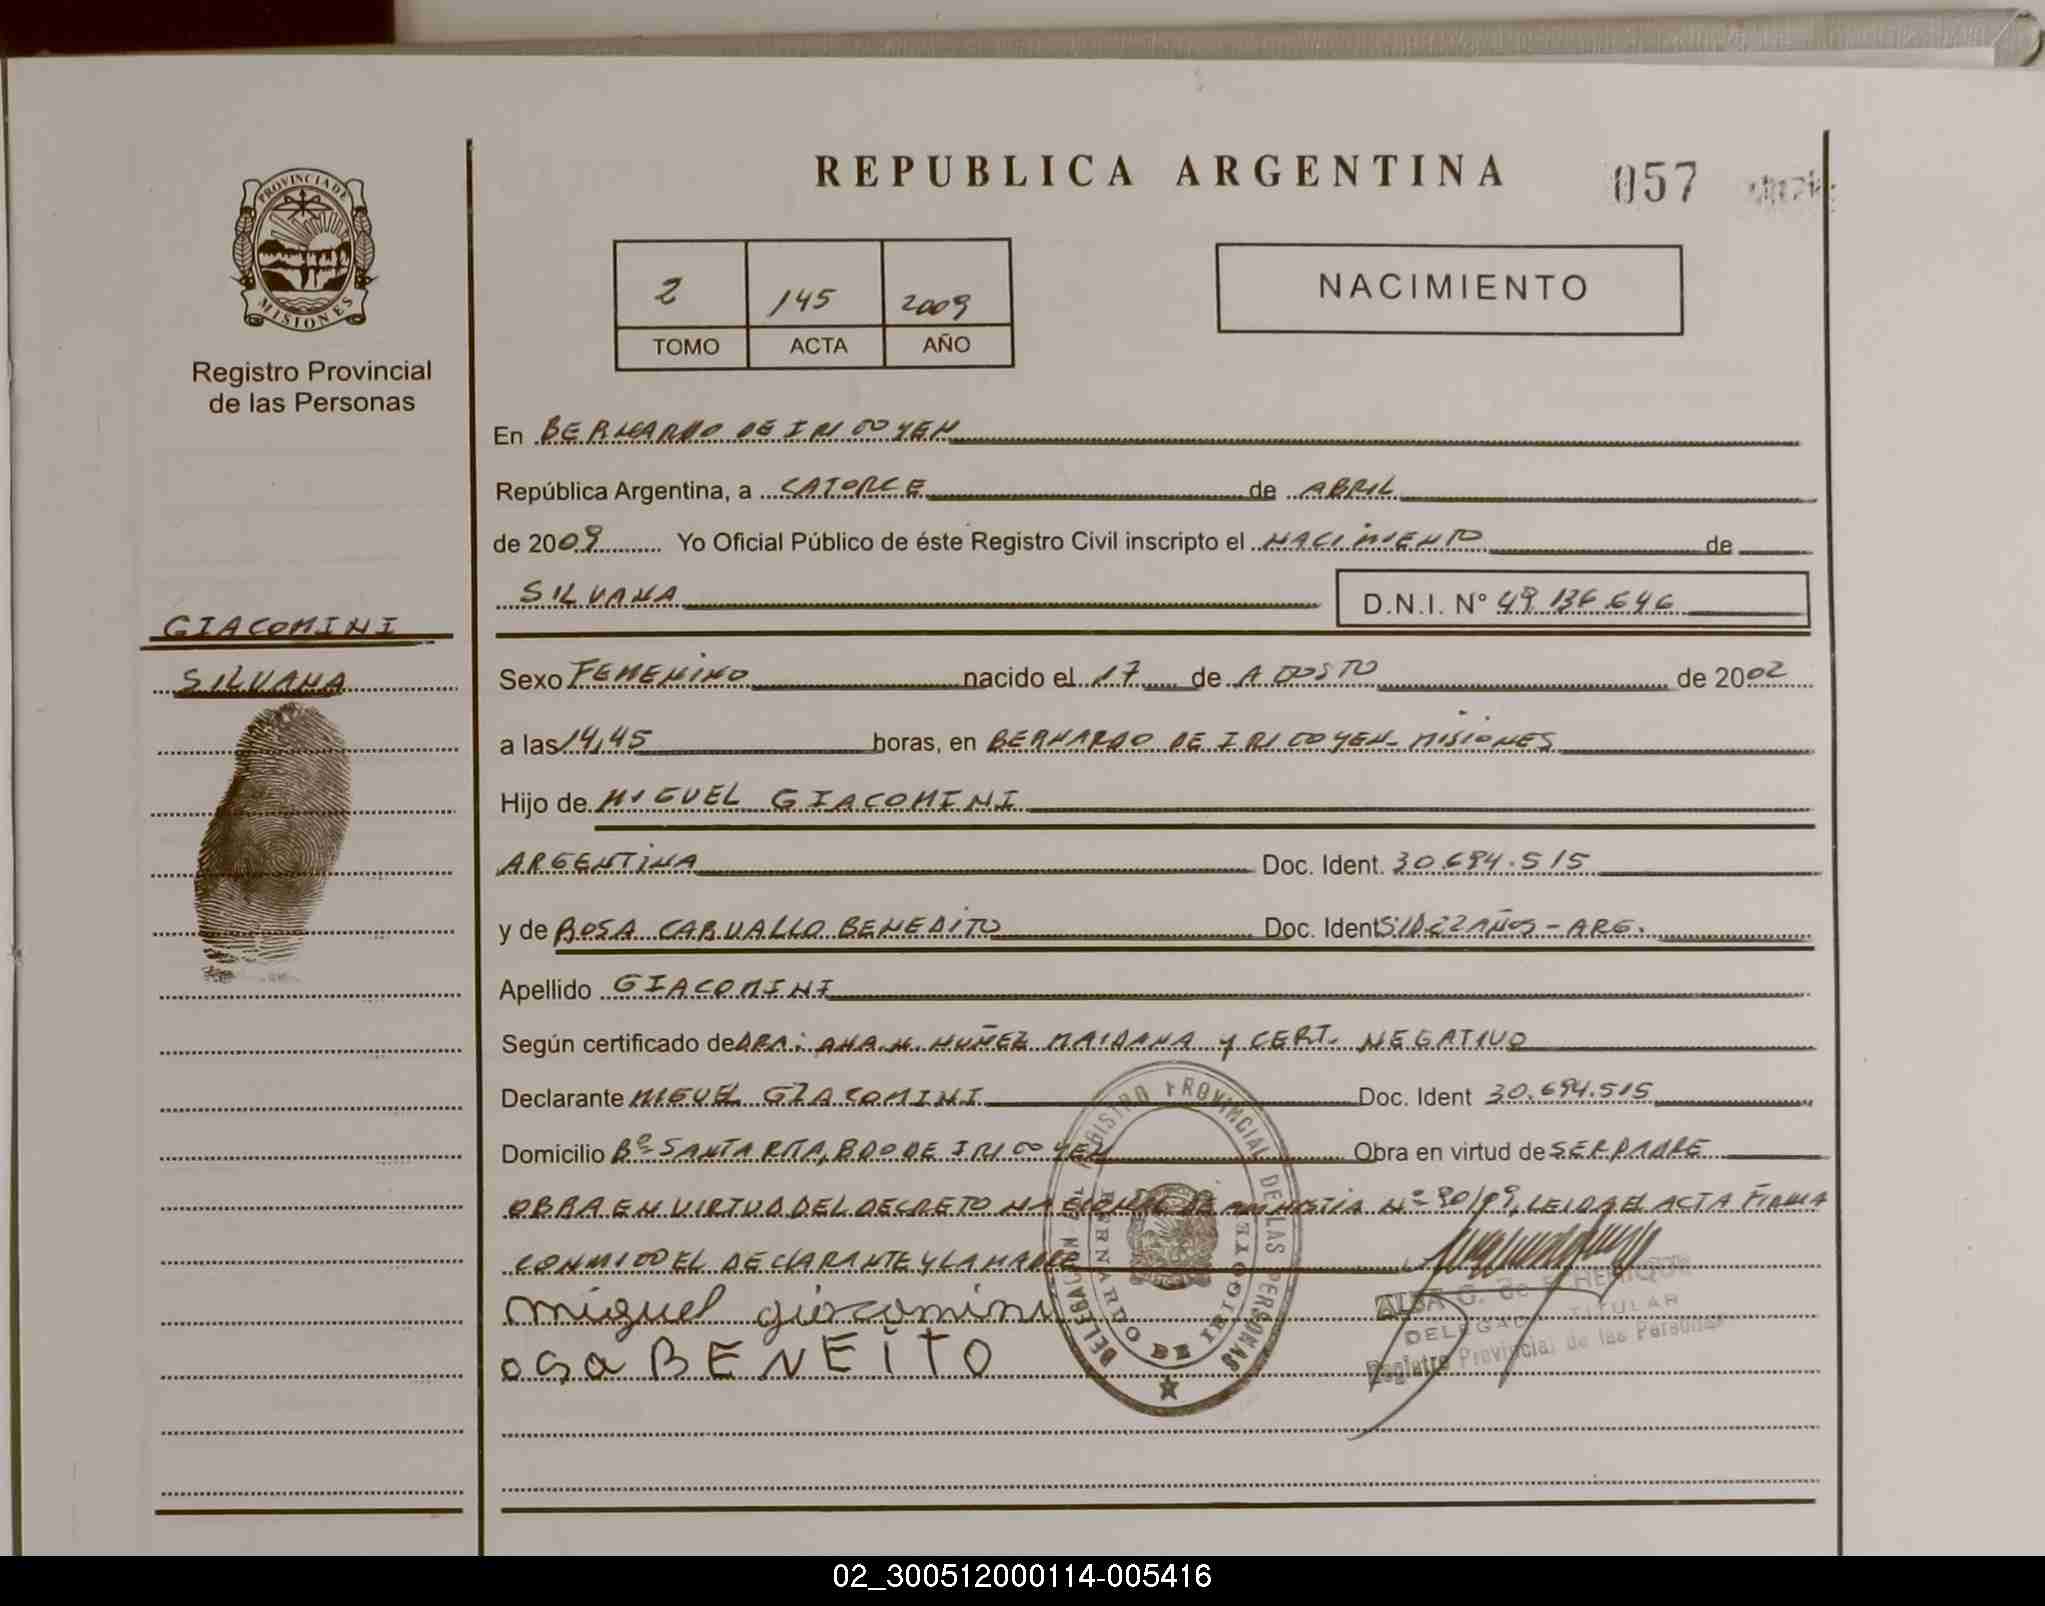 REPUBLICA ARGENTINA
057
PROVINCIA DE
MISIONES
Registro Provincial
de las Personas
2 145 2009
TOMO ACTA AÑO
NACIMIENTO
En BERNARDO DE IRIGOYEN
República Argentina, a CATORCE de ABRIL
de 2009 Yo Oficial Público de éste Registro Civil inscripto el NACIMIENTO de
SILVANA D.N.I. Nº 49.136.646
GIACOMINI
SILVANA
Sexo FEMENINO nacido el 17 de AGOSTO de 2002
a las 14,45 horas, en BERNARDO DE IRIGOYEN- MISIONES
Hijo de MIGUEL GIACOMINI
ARGENTINA Doc. Ident. 30.694.515
y de ROSA CARVALLO BENEDITO Doc. Ident S/D 22 AÑOS - ARG.
Apellido GIACOMINI
Según certificado de DRA: ANA.N. NUÑEZ MAIDANA y CERT. NEGATIVO
Declarante MIGUEL GIACOMINI Doc. Ident 30.694.515
Domicilio Bº SANTA RITA, BDO DE IRIGOYEN Obra en virtud de SER PADRE
OBRA EN VIRTUD DEL DECRETO NACIONAL DE AMNISTIA Nº 90/09, LEIDA EL ACTA FIRMA
CONMIGO EL DECLARANTE Y LA MADRE
miguel giacomini
osa BENEITO
REGISTRO PROVINCIAL DE LAS PERSONAS
BERNARDO DE IRIGOYEN
ALBA G. de ECHERIQUE
DELEGADA TITULAR
Registro Provincial de las Personas
02_300512000114-005416